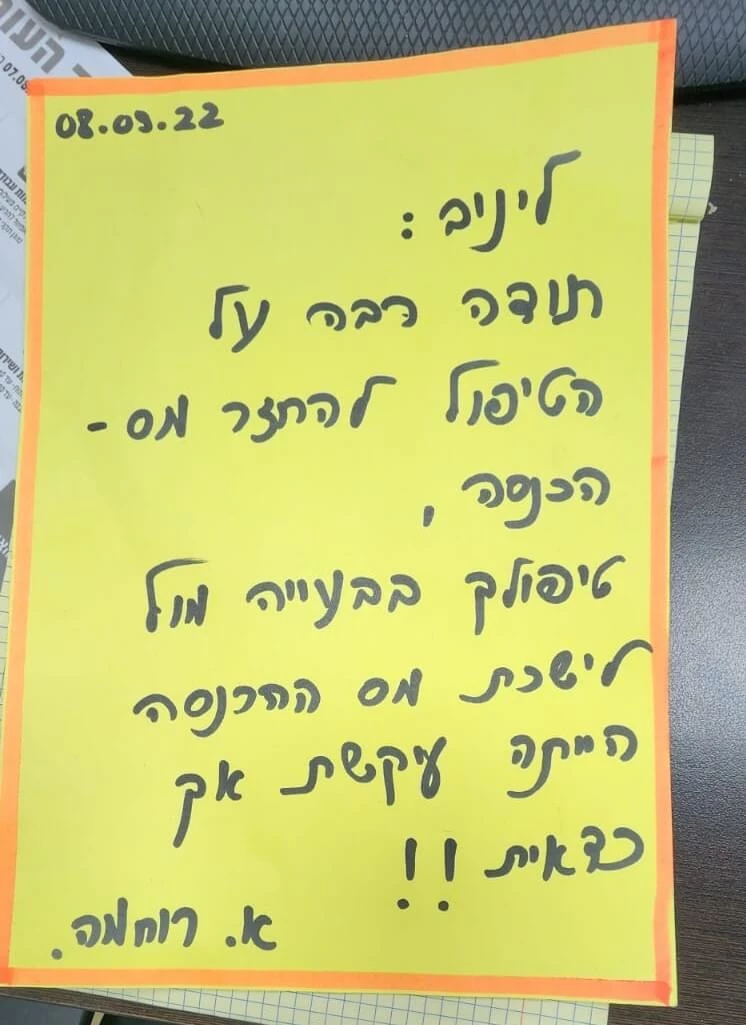 08.03.22
ליניב:
תודה רבה על
הטיפול להחזר מס-
הכנסה,
טיפולך בבעייה מול
לישכת מס ההכנסה
הייתה עיקשת אך
כדאית!!
א. רוחמה.